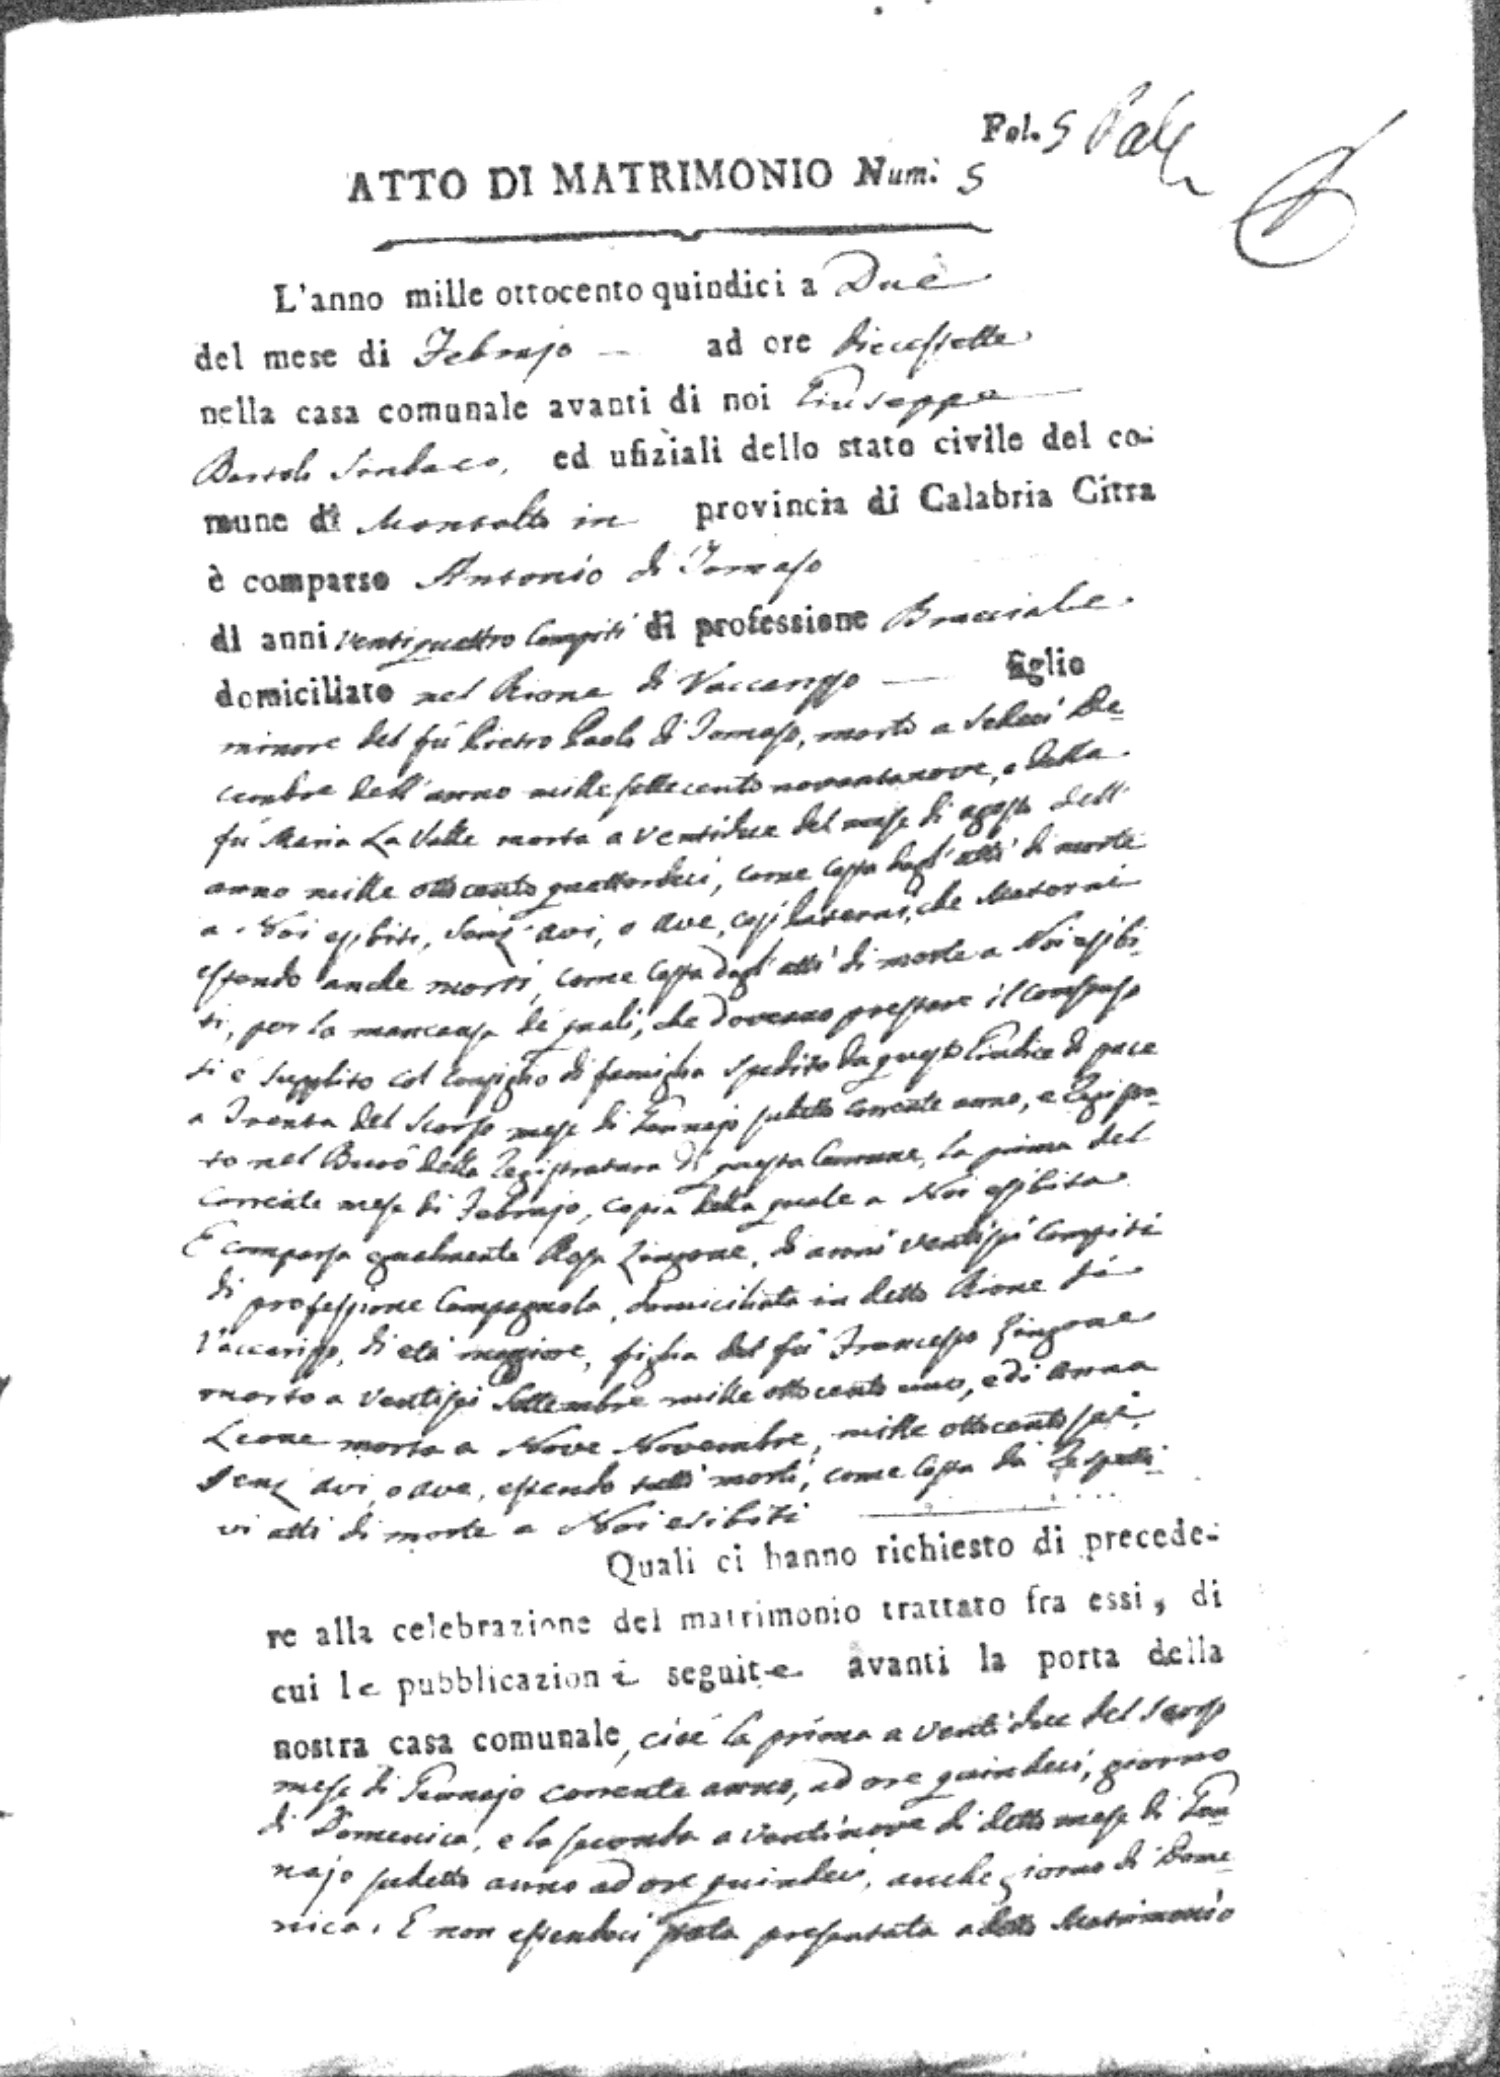 Fol. 5
ATTO DI MATRIMONIO Num: 5
L'anno mille ottocento quindici a Due
del mese di Febrajo — ad ore diecessette
nella casa comunale avanti di noi Giuseppe
Bartoli Sindaco, ed ufiziali dello stato civile del co-
mune di Montalto in provincia di Calabria Citra
è comparso Antonio di Tomaso
di anni ventiquattro compiti di professione Bracciale
domiciliato nel Rione di Vaccarizzo — figlio
minore del fù Pietro Paolo di Tomaso, morto a Sedeci De-
cembre dell'anno mille settecento novantanove, e della
fù Maria La Valle morta a ventidue del mese di agosto dell'
anno mille ottocento quattordeci, come costa dagl'atti di morte
a Noi esibiti, senz'avi, o ave, così Paterni, che Materni
essendo anche morti, come costa dagl'atti di morte a Noi esibi-
ti, per la mancanza de quali, che dovevano prestare il consenso
si è supplito col consiglio di famiglia spedito da questo Giudice di pace
a Trenta del scorso mese di Gennajo sudetto corrente anno, e Regista-
to nel Burò della Registratura di questa Comune, la prima del
corrente mese di Febrajo, copia della quale a Noi esibita
E comparsa egualmente Rosa Zingone, di anni ventisei compiti
di professione Campagnola, domiciliata in detto Rione di
Vaccarizzo, di età maggiore, figlia del fù Francesco Zingone
morto a ventisei Settembre mille ottocento uno, e di Anna
Leone morta a Nove Novembre, mille ottocento sei,
senz'avi, o ave, essendo tutti morti, come costa da Rispetti-
vi atti di morte a Noi esibiti
Quali ci hanno richiesto di precede-
re alla celebrazione del matrimonio trattato fra essi, di
cui le pubblicazioni seguite avanti la porta della
nostra casa comunale, cioè la prima a ventidue del scorso
mese di Gennajo corrente anno, ad ore quindeci, giorno
di Domenica, e la seconda a ventinove di detto mese di Gen-
najo sudetto anno ad ore quindeci, anche giorno di Dome-
nica. E non essendoci stata presentata a detto Matrimonio